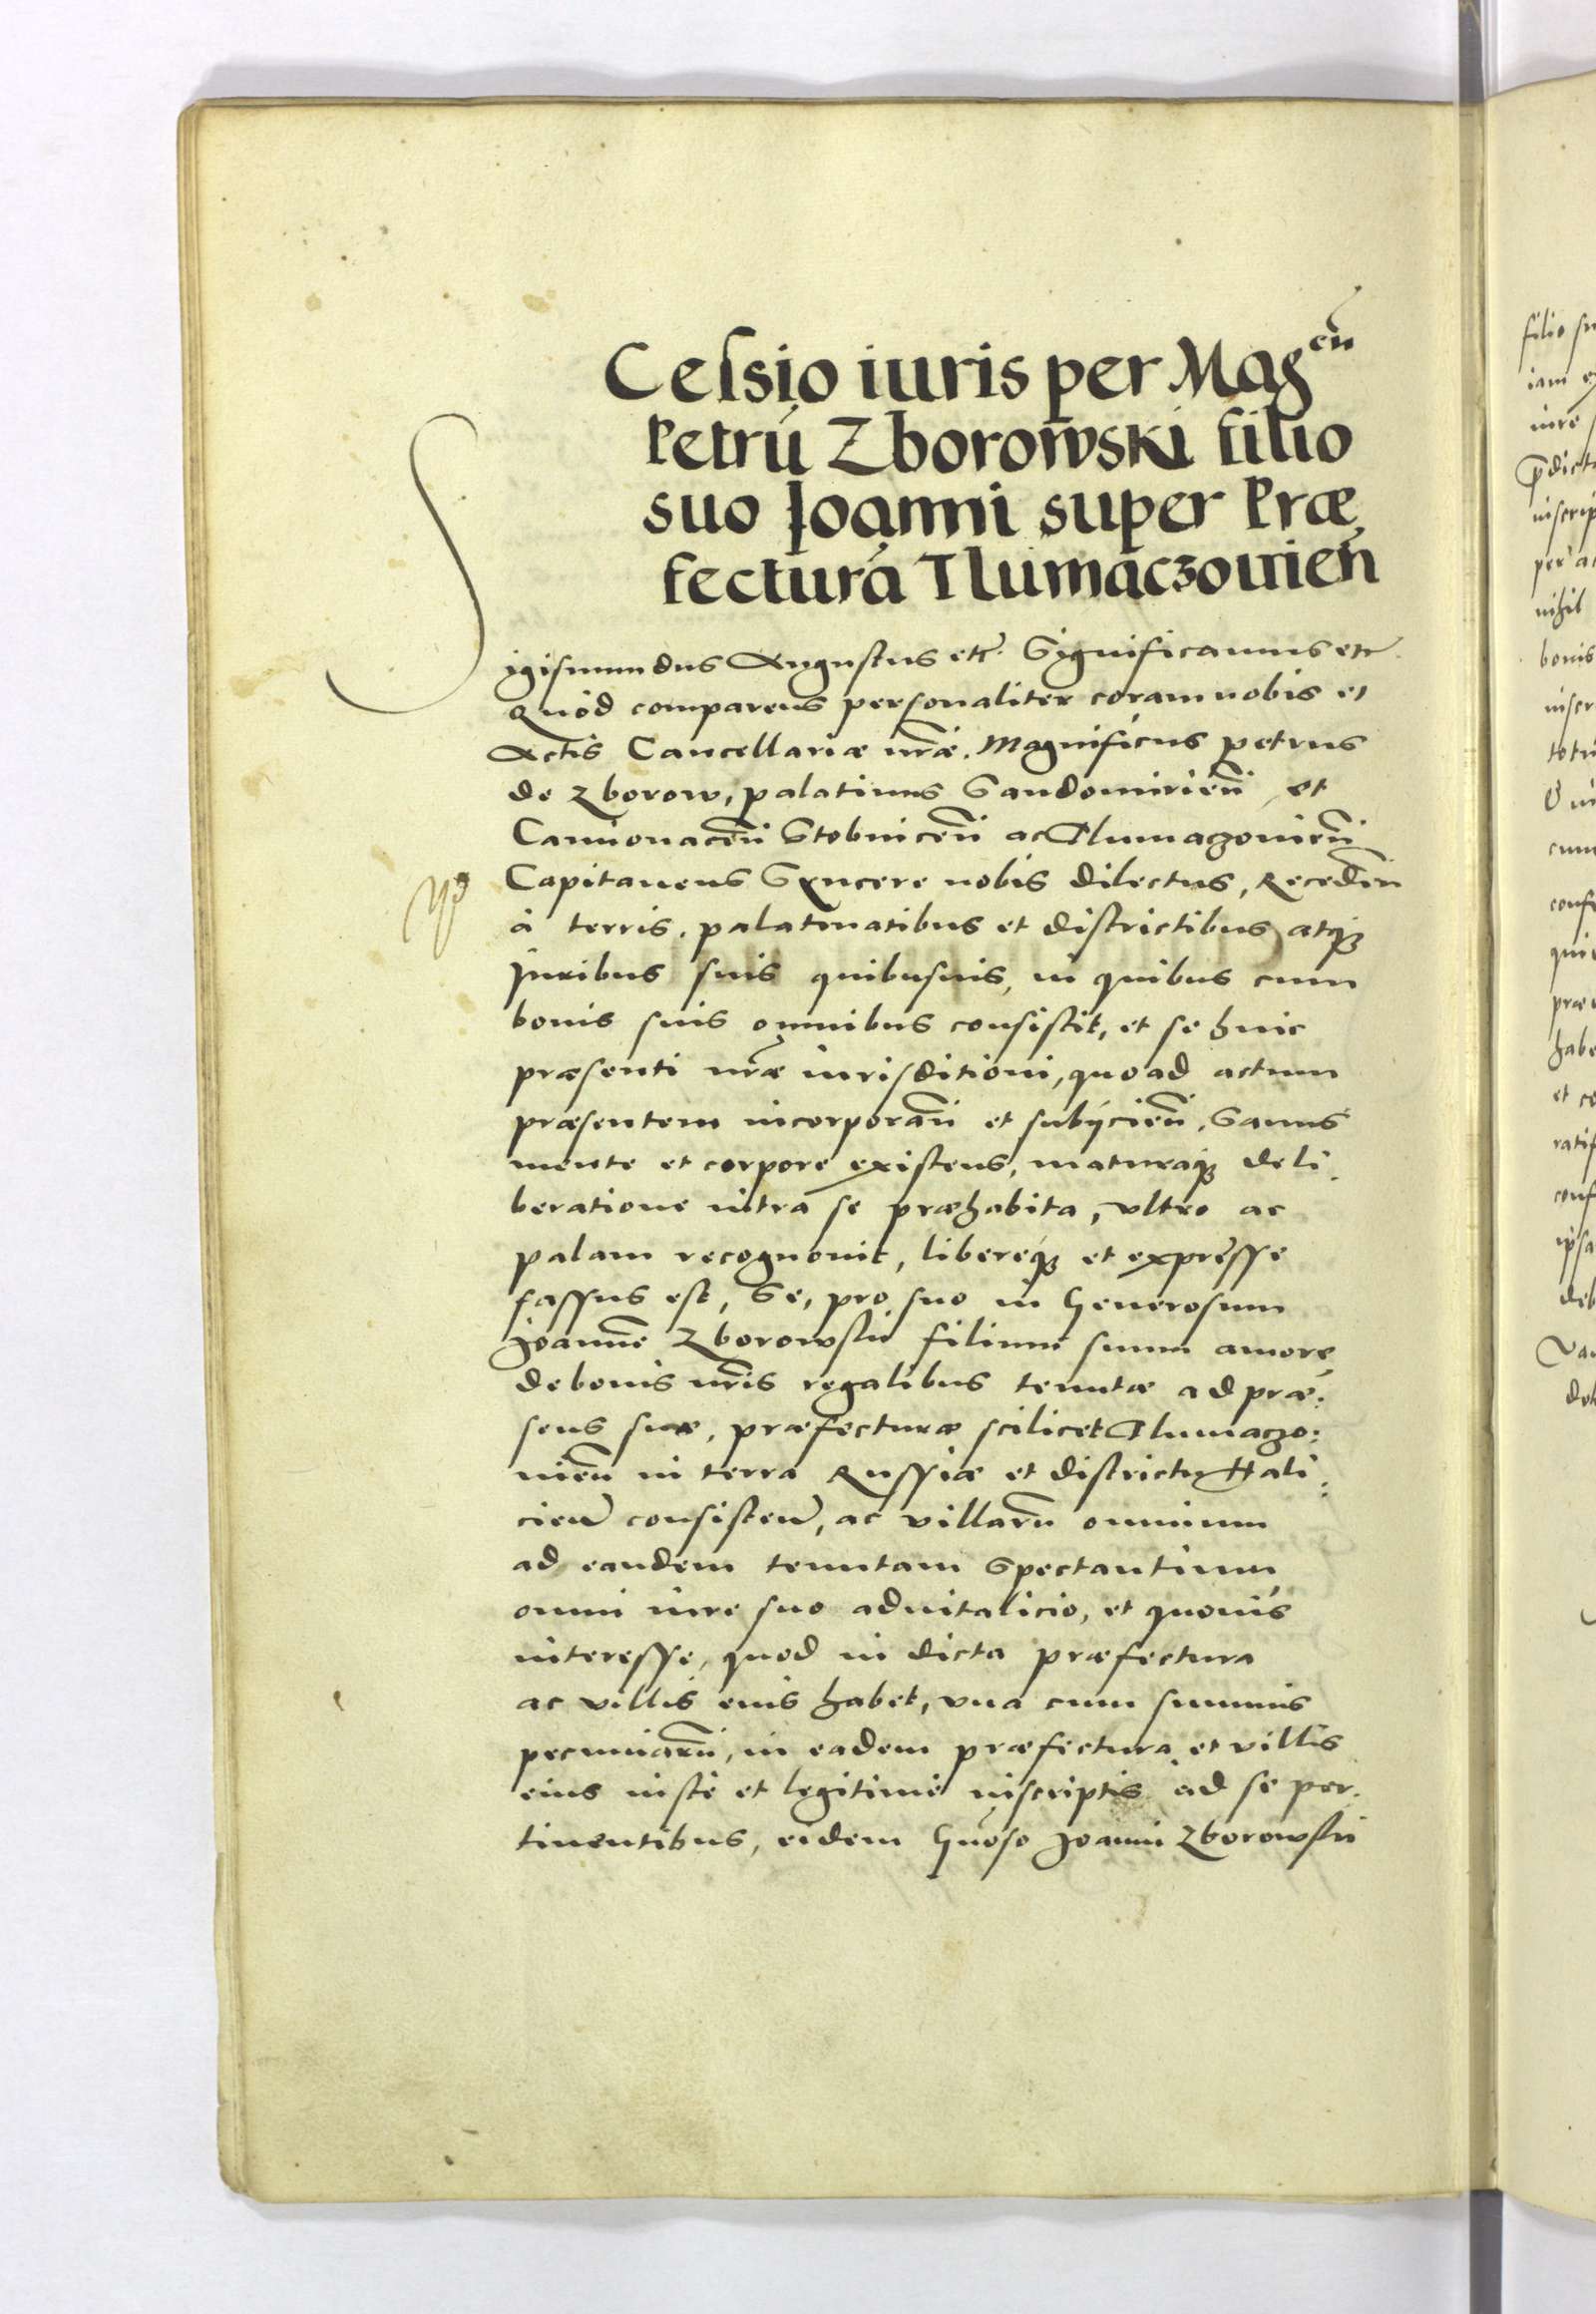 Cessio iuris per Mag^cū
Petrū Zborowski filio
suo Ioanni super Præ,
fecturā Tlumaczouień
Sigismundus Augustus etc̃. Significamus etc̃.
Quòd comparens personaliter coram nobis et
Actis Cancellariæ nr̃æ. Magnificus Petrus
de Zborow, palatinus Sandomirieñ, et
Camionaceñ Stobniceñ ac Tlumaczouieñ
Capitaneus Syncere nobis dilectus, Recedeñ
à terris, palatinatibus et districtibus atq;
Iuribus suis quibusuis, in quibus cum
bonis suis omnibus consistit, et se huic
præsenti nr̃æ iurisditioni, quo ad actum
præsentem incorporañ et subÿcieñ, Sanus
mente et corpore existens, maturaq; deli,
beratione intra se præhabita, vltro ac
palam recognouit, libereq; et expresse
fassus est, Se, pro suo in Generosum
Joannē Zborowski filium suum amore,
de bonis nr̃is regalibus tenutæ ad præ:
sens suæ, præfecturæ scilicet Tlumaczo:
uieñ in terra Russiæ et districtu Hali:
cieñ consisteñ, ac villarū omnium
ad eandem tenutam Spectantium
omni iure suo aduitalicio, et quouis
interesse, quod in dicta præfectura
ac villis eius habet, vna cum summis
pecuniarū, in eadem præfectura et villis
eius iustè et legitimè inscriptis ad se per,
tinentibus, eidem Gñoso Joanni Zborowski
filio su
iam
iure
p̃dict
inscrip
per a
nihil
bonis
inscr
totu
cum
conf
qui
præ
habe
et c
ratif
conf
ipsa
deb